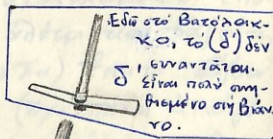 Ἐδῶ στό Βατόλακ-
κο, τό (δ') δέν
δ' συναντᾶται.
εἶναι πολύ συνη-
θισμένο στή Βιάν-
νο.